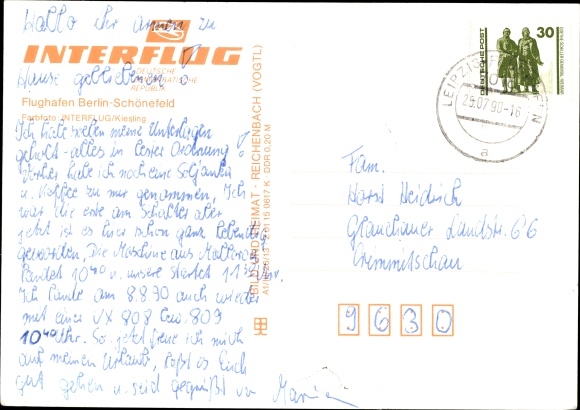 Hallo ihr armen zu
INTERFLUG
Hause gebliebenen!
DEUTSCHE
DEMOKRATISCHE
REPUBLIK
Flughafen Berlin-Schönefeld
Farbfoto: INTERFLUG/Kiesling
Ich habe soeben meine Unterlagen
geholt - alles in bester Ordnung!
Vorher habe ich noch eine Soljanka
u. Kaffee zu mir genommen. Ich
war die erste am Schalter aber
jetzt ist es hier schon ganz lebendig
geworden. Die Maschine aus
landet 10 40 u. unsere startet 11 Uhr.
Ich lande am 8.8.90 auch wieder
mit einer 808 bzw. 809
10 40 Uhr. So jetzt freue ich mich
auf meinen Urlaub, laßt es Euch
gut gehen u. seid gegrüßt von
BILD UND HEIMAT · REICHENBACH (VOGTL)
DDR 0,20 M
30
DEUTSCHE POST
LEIPZIG
25.07.90-16
a
Fam.
Horst Heidrich
Glauchauer Landstr. 66
Crimmitschau
9630